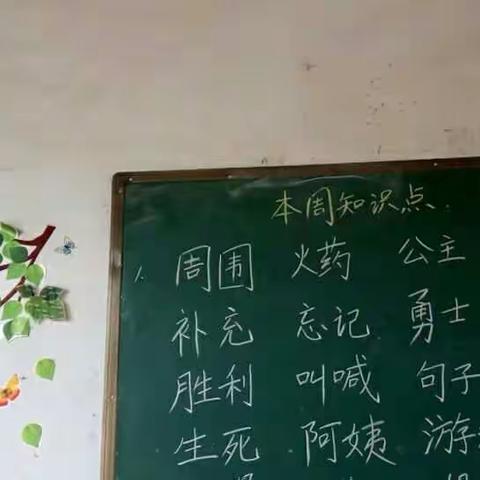 本周知识点
1、周围 火药 公主
补充 忘记 勇士
胜利 叫喊 句子
生死 阿姨 游